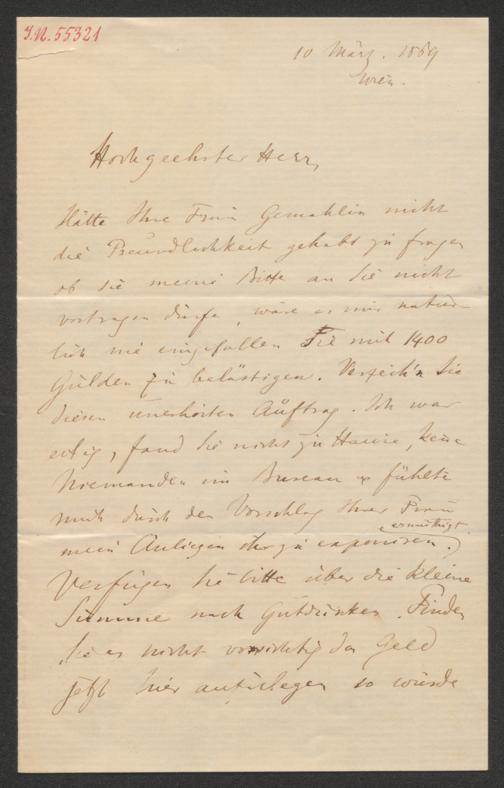 I.N. 55321
10 März. 1869
Wien.
Hochgeehrter Herr,
Hätte Ihre Frau Gemahlin nicht
die Freundlichkeit gehabt zu fragen
ob sie meine Bitte an Sie nicht
vortragen dürfe, wäre es mir natür-
lich nie eingefallen Sie mit 1400
Gulden zu belästigen. Verzeih'n Sie
diesen unerhörten Auftrag. Ich war
eilig, fand Sie nicht zu Hause,
Niemanden im Bureau u fühlte
mich durch den Vorschlag Ihrer Frau
ermuthigt
mein Anliegen zu exponiren.
Verfügen Sie bitte über die kleine
Summe nach Gutdünken. Finden
Sie es nicht vorsichtig das Geld
jetzt hier anzulegen so würde